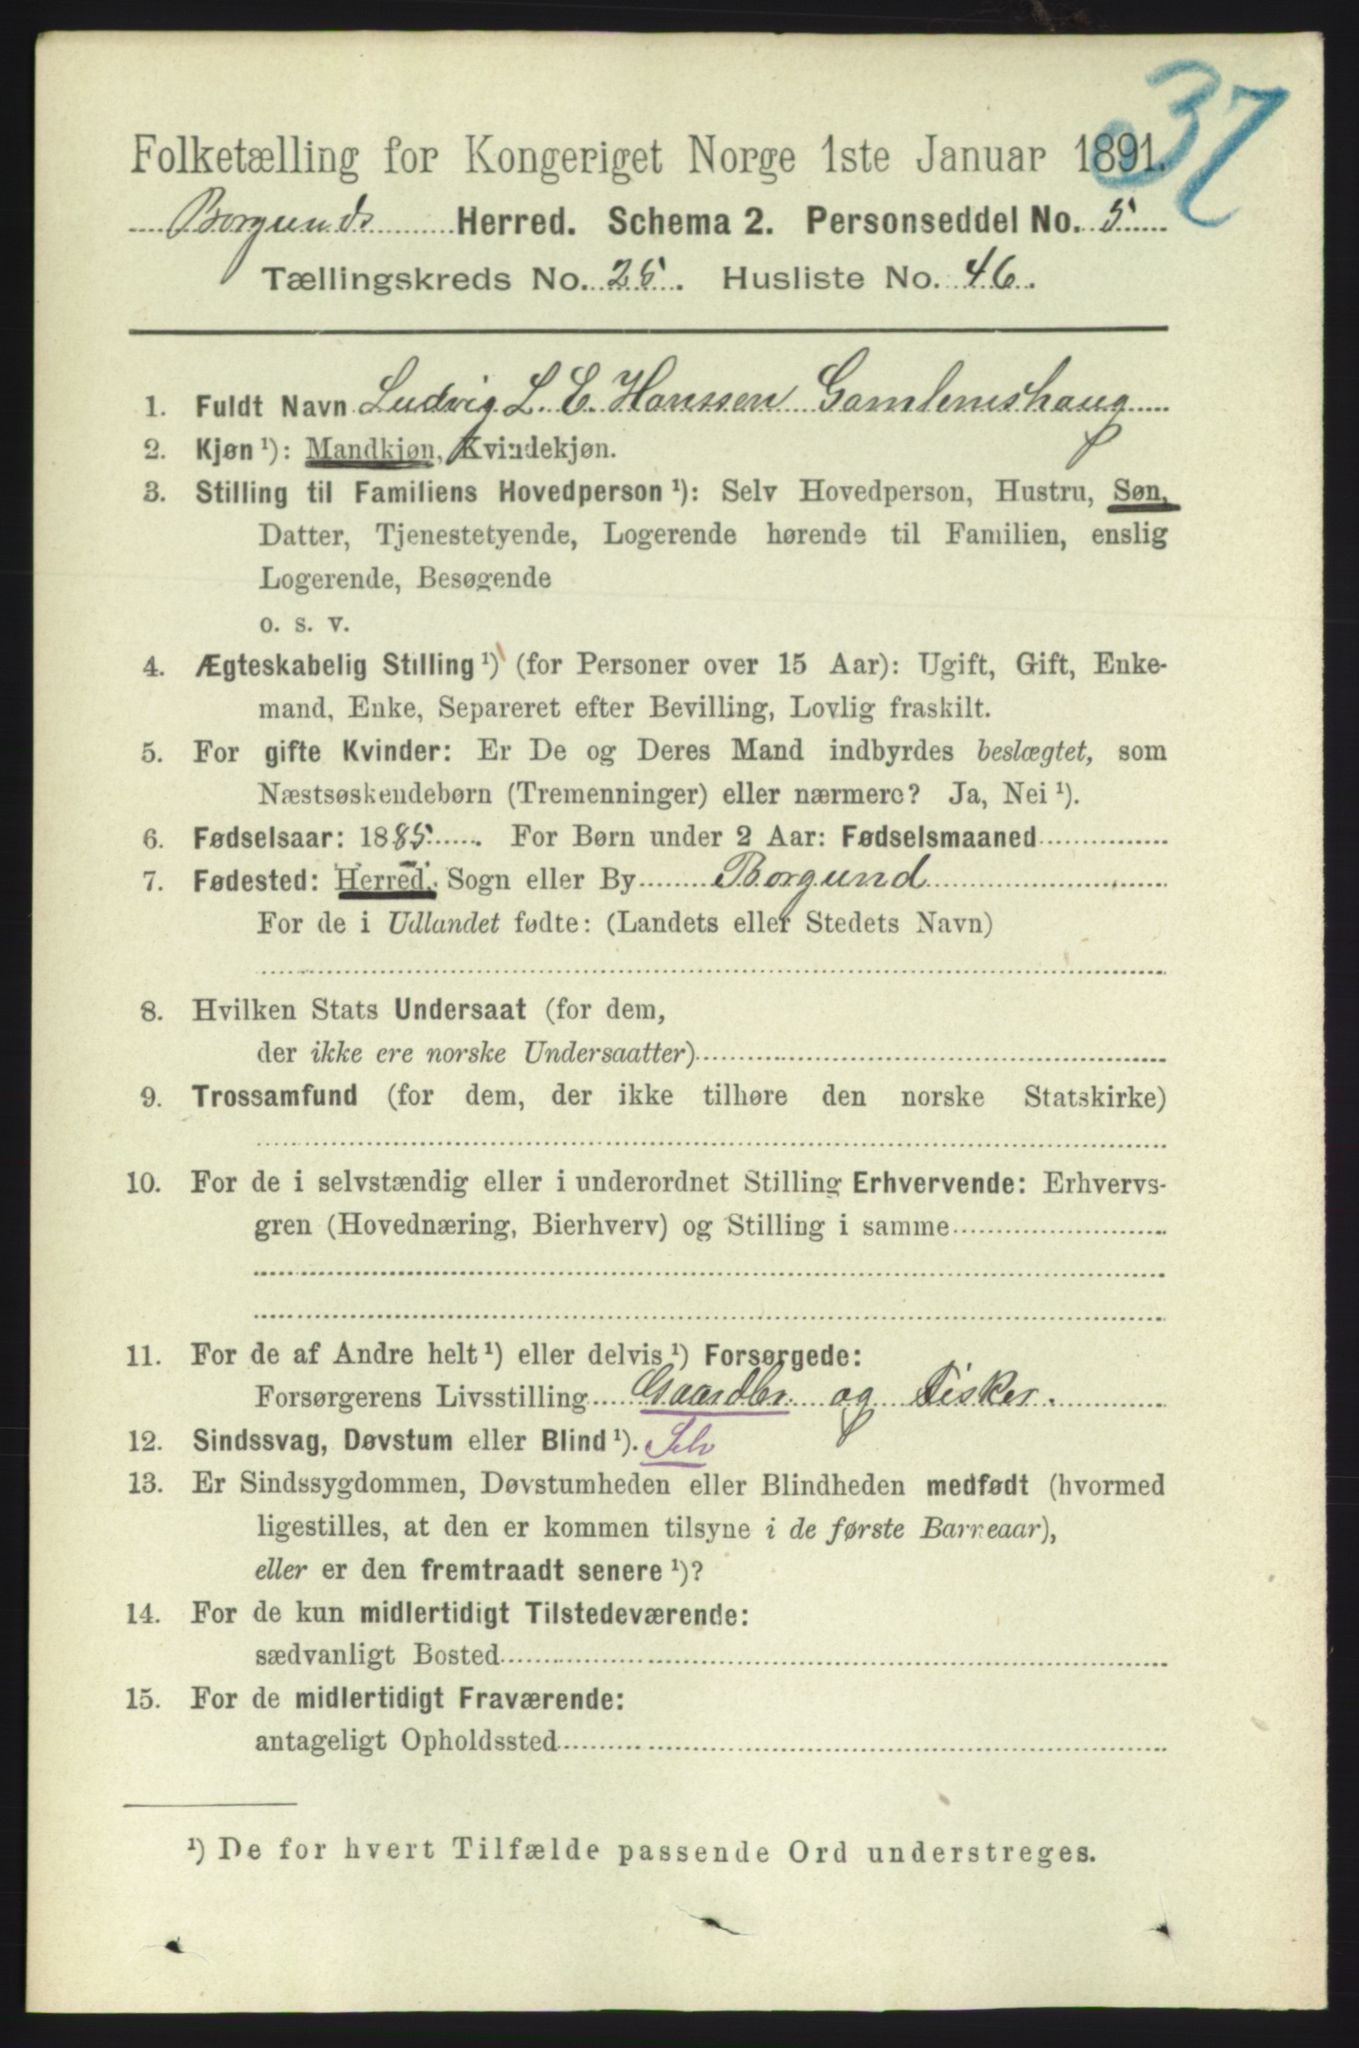 37
Folketælling for Kongeriget Norge 1ste Januar 1891.
Borgunds Herred. Schema 2. Personseddel No. 5
Tællingskreds No. 25. Husliste No. 46.
1. Fuldt Navn Ludvig L. E. Hanssen Gamlemshaug
2. Kjøn ¹): Mandkjøn, Kvindekjøn.
3. Stilling til Familiens Hovedperson ¹): Selv Hovedperson, Hustru, Søn,
Datter, Tjenestetyende, Logerende hørende til Familien, enslig
Logerende, Besøgende
o. s. v.
4. Ægteskabelig Stilling ¹) (for Personer over 15 Aar): Ugift, Gift, Enke-
mand, Enke, Separeret efter Bevilling, Lovlig fraskilt.
5. For gifte Kvinder: Er De og Deres Mand indbyrdes beslægtet, som
Næstsøskendebørn (Tremenninger) eller nærmere? Ja, Nei ¹).
6. Fødselsaar: 1885. For Børn under 2 Aar: Fødselsmaaned
7. Fødested: Herred, Sogn eller By Borgund
For de i Udlandet fødte: (Landets eller Stedets Navn)
8. Hvilken Stats Undersaat (for dem,
der ikke ere norske Undersaatter)
9. Trossamfund (for dem, der ikke tilhøre den norske Statskirke)
10. For de i selvstændig eller i underordnet Stilling Erhvervende: Erhvervs-
gren (Hovednæring, Bierhverv) og Stilling i samme
11. For de af Andre helt ¹) eller delvis ¹) Forsørgede:
Forsørgerens Livsstilling Gaardbr. og Fisker.
12. Sindssvag, Døvstum eller Blind ¹). Selv
13. Er Sindssygdommen, Døvstumheden eller Blindheden medfødt (hvormed
ligestilles, at den er kommen tilsyne i de første Barneaar),
eller er den fremtraadt senere ¹)?
14. For de kun midlertidigt Tilstedeværende:
sædvanligt Bosted
15. For de midlertidigt Fraværende:
antageligt Opholdssted
¹) De for hvert Tilfælde passende Ord understreges.